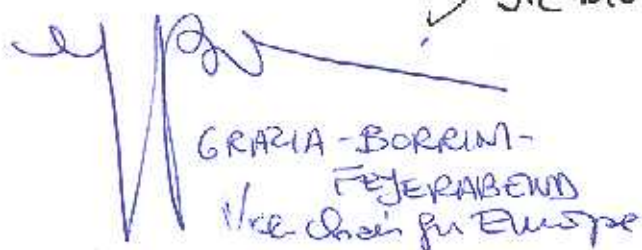 GRAZIA-BORRINI-
FEYERABEND
Vice chair for Europe